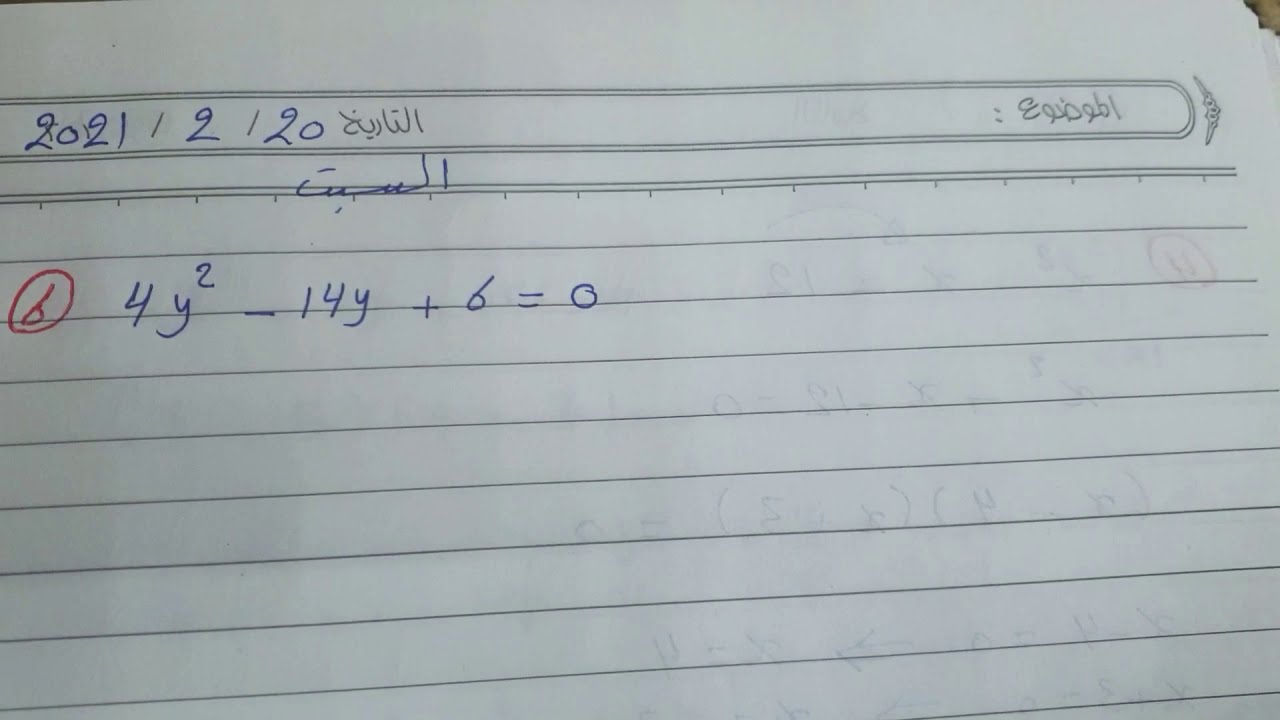 الموضوع :
التاريخ 20 / 2 / 2021
السبت
6 4y² - 14y + 6 = 0